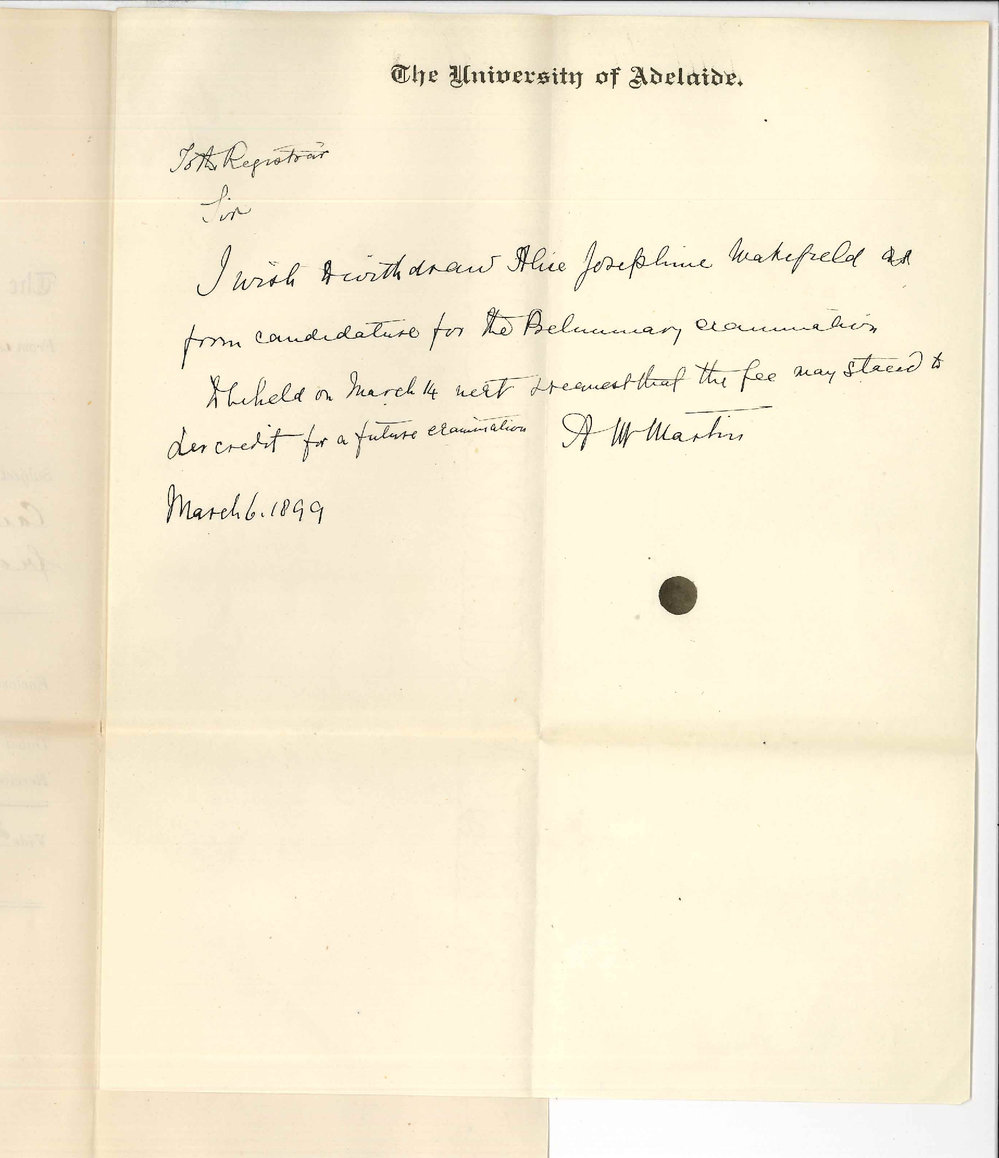 The University of Adelaide.
To the Registrar
Sir
I wish to withdraw Alice Josephine Wakefield
from candidature for the Preliminary examination
to be held on March 14 next & request that the fee may stand to
her credit for a future examination A W Martin
March 6. 1899